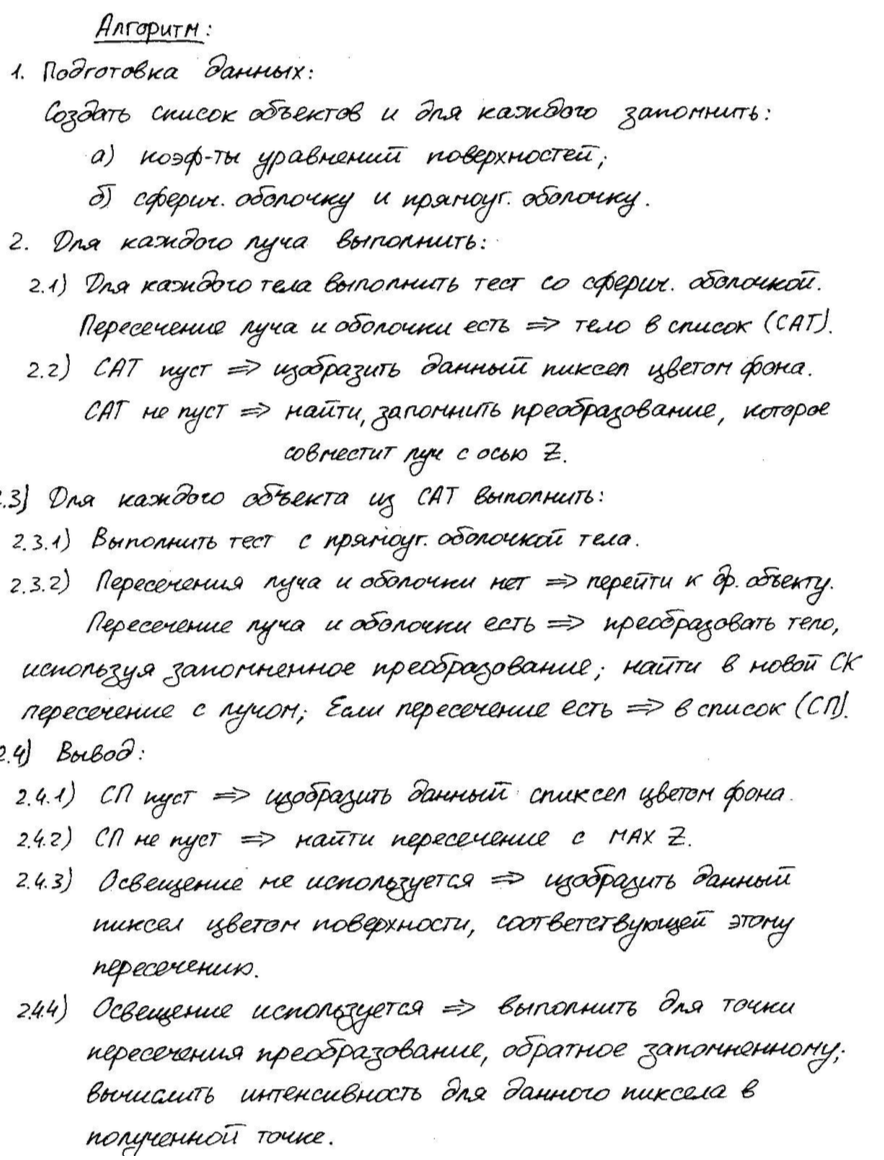 Алгоритм:
1. Подготовка данных:
Создать список объектов и для каждого запомнить:
а) коэф-ты уравнений поверхностей;
б) сферич. оболочку и прямоуг. оболочку.
2. Для каждого луча выполнить:
2.1) Для каждого тела выполнить тест со сферич. оболочкой.
Пересечение луча и оболочки есть => тело в список (САТ).
2.2) САТ пуст => изобразить данный пиксел цветом фона.
САТ не пуст => найти, запомнить преобразование, которое
совместит луч с осью Z.
.3) Для каждого объекта из САТ выполнить:
2.3.1) Выполнить тест с прямоуг. оболочкой тела.
2.3.2) Пересечения луча и оболочки нет => перейти к др. объекту.
Пересечение луча и оболочки есть => преобразовать тело,
используя запомненное преобразование; найти в новой СК
пересечение с лучом; Если пересечение есть => в список (СП).
2.4) Вывод:
2.4.1) СП пуст => изобразить данный спиксел цветом фона.
2.4.2) СП не пуст => найти пересечение с MAX Z.
2.4.3) Освещение не используется => изобразить данный
пиксел цветом поверхности, соответствующей этому
пересечению.
2.4.4) Освещение используется => выполнить для точки
пересечения преобразование, обратное запомненному;
вычислить интенсивность для данного пиксела в
полученной точке.